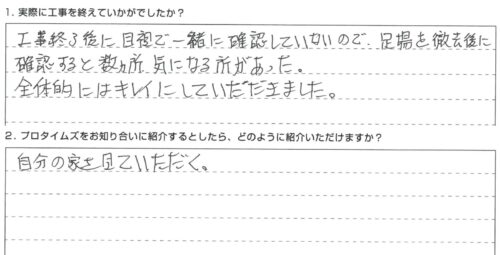 1. 実際に工事を終えていかがでしたか？
工事終了後に目視で一緒に確認していないので、足場を撤去後に
確認すると数ヵ所気になる所があった。
全体的にはキレイにしていただきました。
2. プロタイムズをお知り合いに紹介するとしたら、どのように紹介いただけますか？
自分の家を見ていただく。